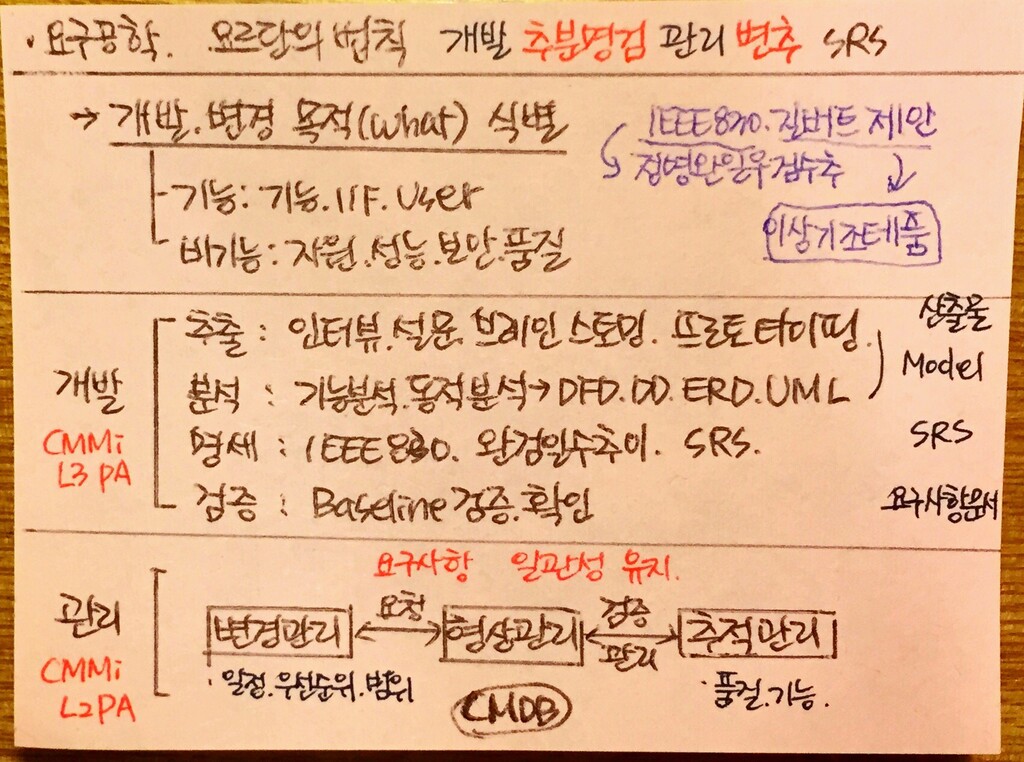 · 요구공학. 요르단의 법칙 개발 추분명검 관리 변추 SRS
→ 개발.변경 목적(what) 식별
IEEE830.길버트 제안
정명완일우검수추
기능: 기능.I/F.User
이상기조테품
비기능: 자원.성능.보안.품질
산출물
추출: 인터뷰.설문.브레인스토밍.프로토타이핑.
Model
개발
분석: 기능분석.동적분석→DFD.DD.ERD.UML
CMMi
L3 PA
명세: IEEE830. 완검일수추이. SRS.
SRS
검증: Baseline 검증.확인
요구사항문서
요구사항 일관성 유지.
관리
변경관리 요청 형상관리 검증 관리 추적관리
CMMi
L2PA
· 일정.우선순위.범위
· 품질.기능.
CMDB